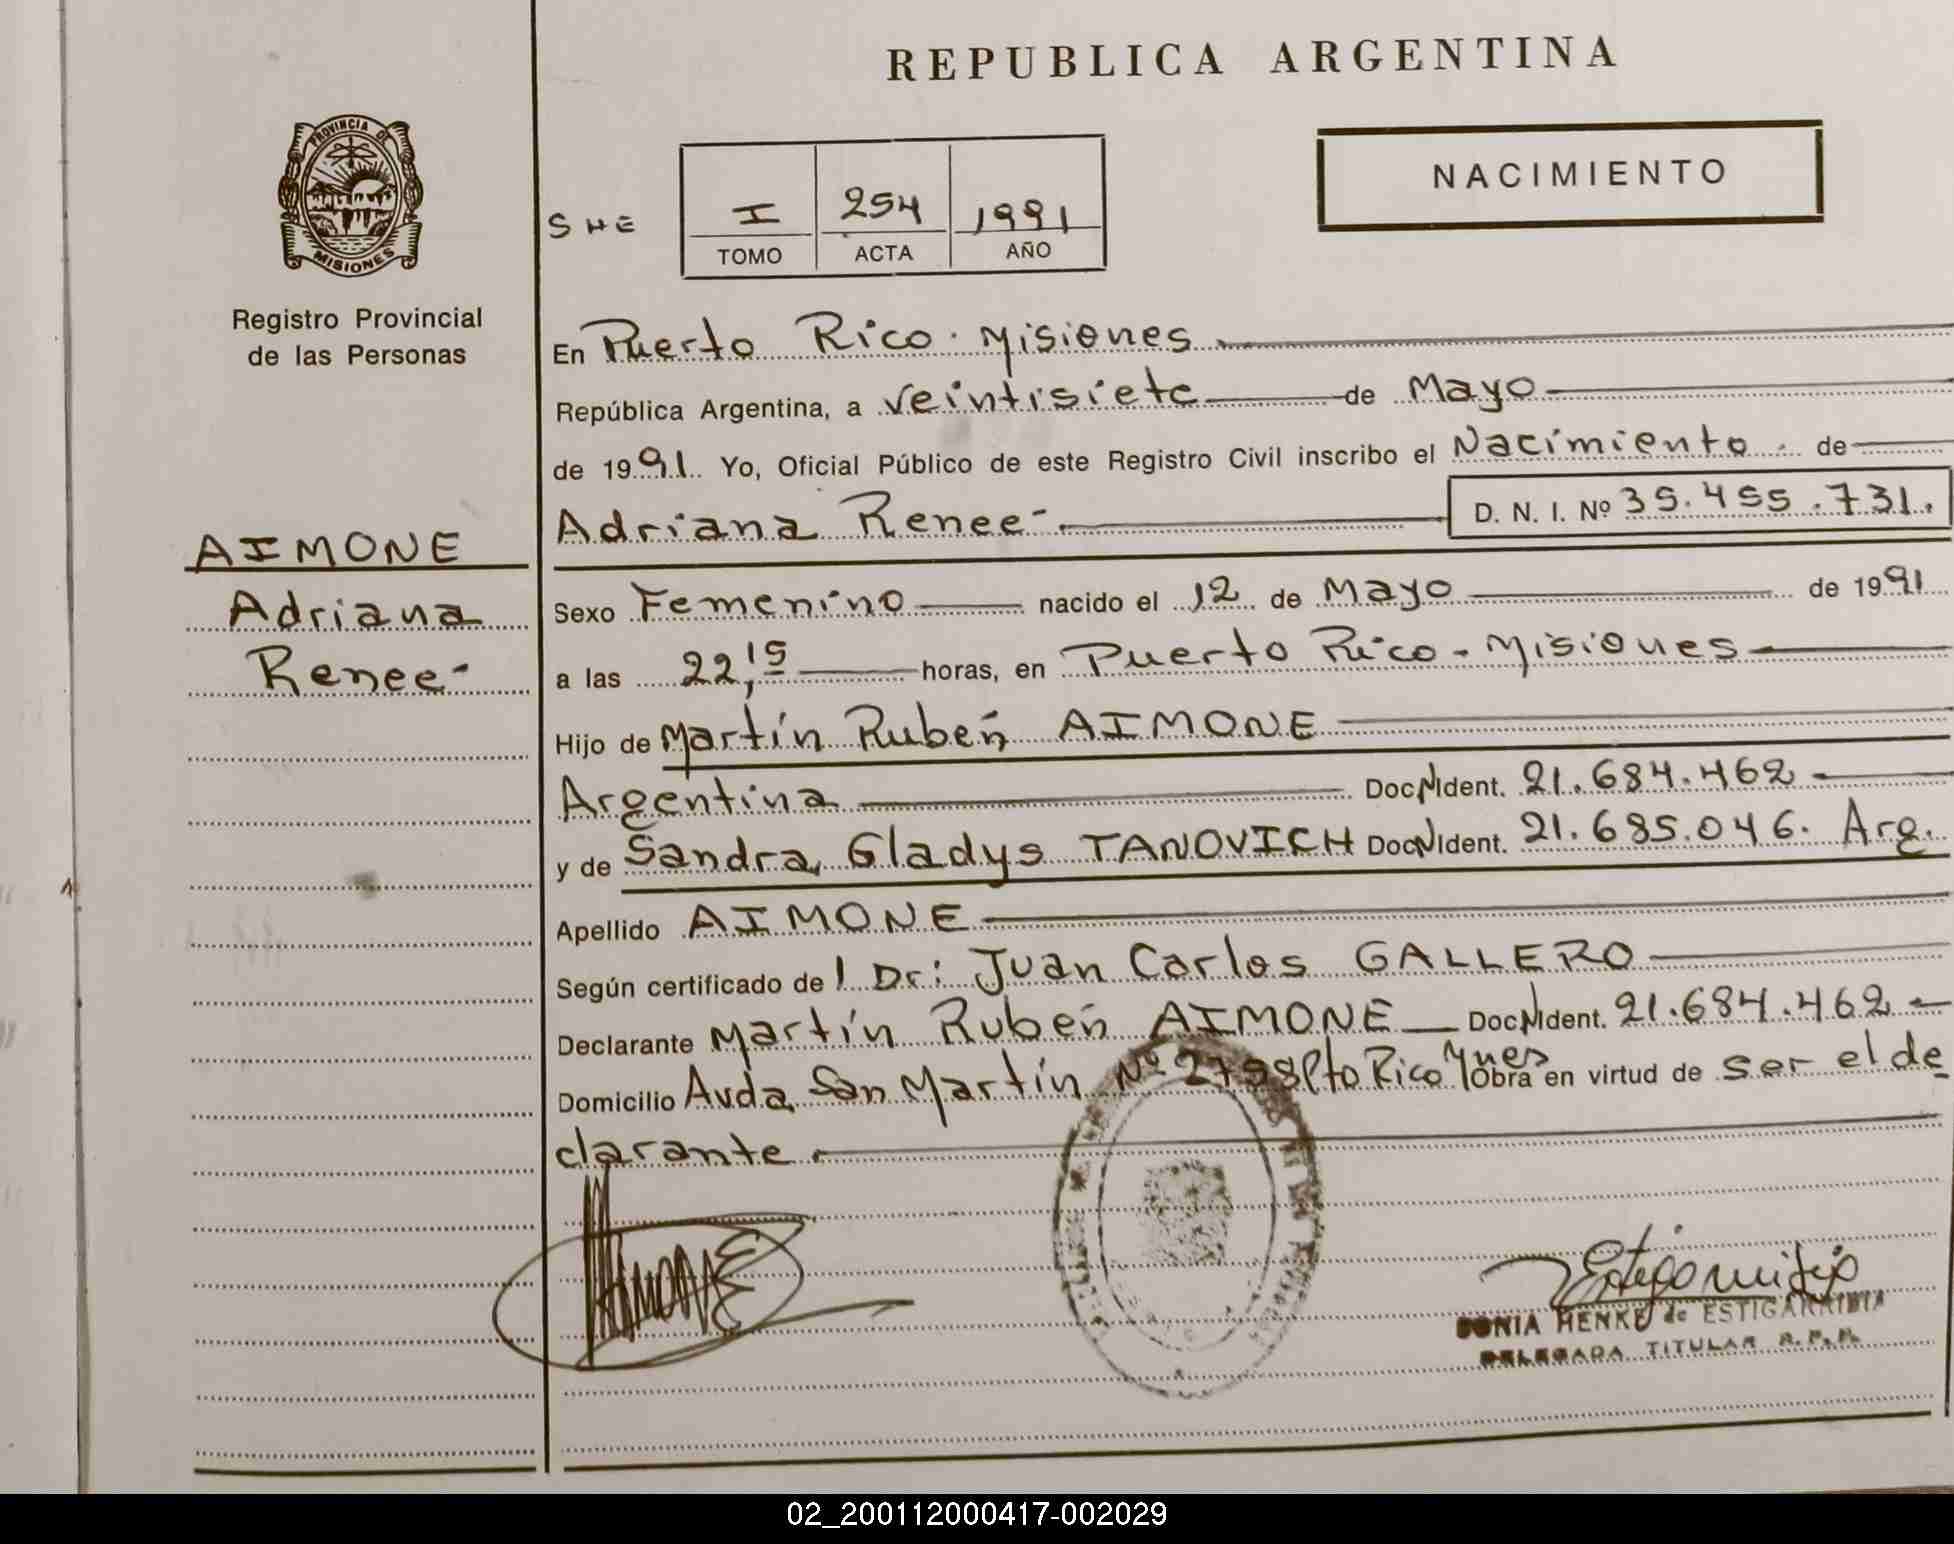 REPUBLICA ARGENTINA
PROVINCIA DE
MISIONES
NACIMIENTO
SHE
I 254 1991
TOMO ACTA AÑO
Registro Provincial
de las Personas
AIMONE
Adriana
Renee-
En Puerto Rico. Misiones
República Argentina, a veintisiete de Mayo
de 1991. Yo, Oficial Público de este Registro Civil inscribo el Nacimiento de
Adriana Renee- D. N. I. Nº 35.455.731.
Sexo Femenino nacido el 12 de Mayo de 1991
a las 22,15 horas, en Puerto Rico - Misiones
Hijo de Martín Rubén AIMONE
Argentina Doc. N Ident. 21.684.462
y de Sandra Gladys TANOVICH Doc. N Ident. 21.685.046. Arg.
Apellido AIMONE
Según certificado de l Dr: Juan Carlos GALLERO
Declarante Martín Rubén AIMONE Doc. N Ident. 21.684.462
Domicilio Avda San Martín Nº 2798 Pto Rico Mnes Obra en virtud de ser el de
clarante
AIMONE
SONIA HENKE de ESTIGARRIBIA
DELEGADA TITULAR R.P.P.
02_200112000417-002029